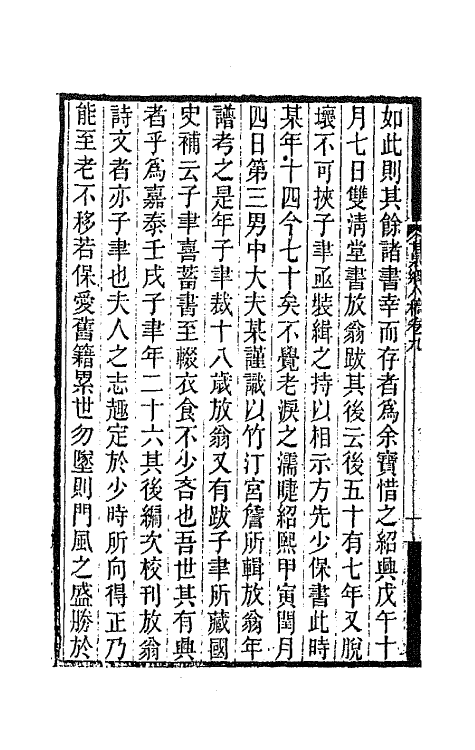 如此則其餘諸書幸而存者爲余寶惜之紹興戊午十
月七日雙清堂書放翁跋其後云後五十有七年又脫
壞不可挾子聿亟裝緝之持以相示方先少保書此時
某年十四今七十矣不覺老淚之濡睫紹熙甲寅閏月
四日第三男中大夫某謹識以竹汀宮詹所輯放翁年
譜考之是年子聿裁十八歲放翁又有跋子聿所藏國
史補云子聿喜蓄書至輟衣食不少吝也吾世其有興
者乎爲嘉泰壬戌子聿年二十六其後編次校刊放翁
詩文者亦子聿也夫人之志趣定於少時所向得正乃
能至老不移若保愛舊籍累世勿墜則門風之盛勝於
卷九